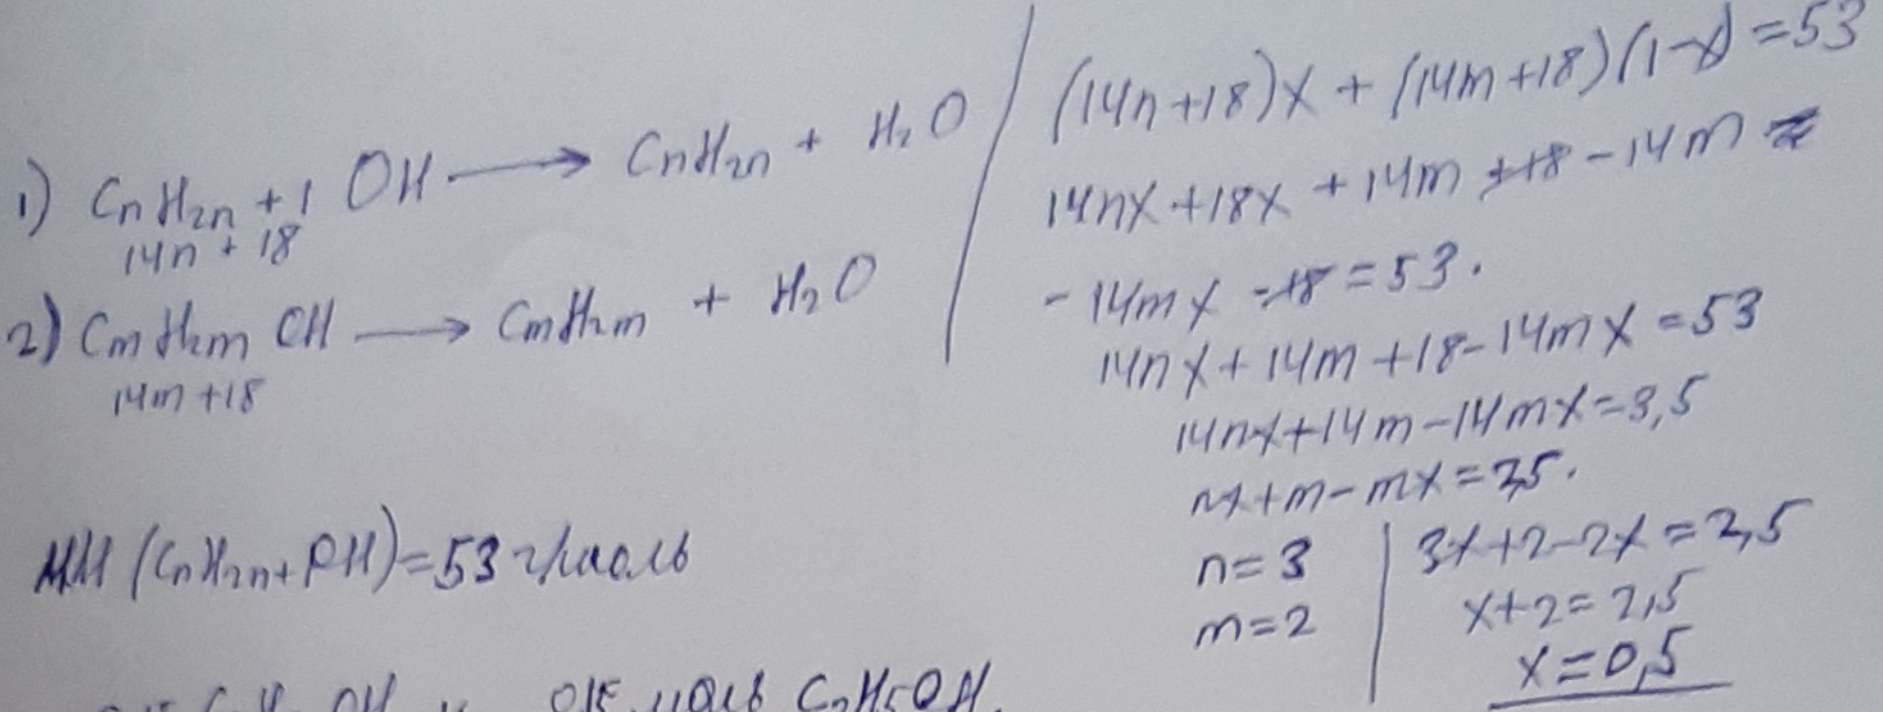 1) CnH2n+1 OH → CnH2n + H2O
14n + 18
2) CmH2m OH → CmH2m + H2O
14m +18
MM (CnH2n+1OH)=53 г/моль
OH и 0,5 моль C2H5OH.
(14n+18)x + (14m+18)(1-x)=53
14nx+18x + 14m +18-14m
-14mx -18 = 53.
14nx+14m+18-14mx=53
14nx+14m-14mx=3,5
nx+m-mx=2,5.
n=3
m=2
3x+2-2x=2,5
x+2=2,5
x=0,5